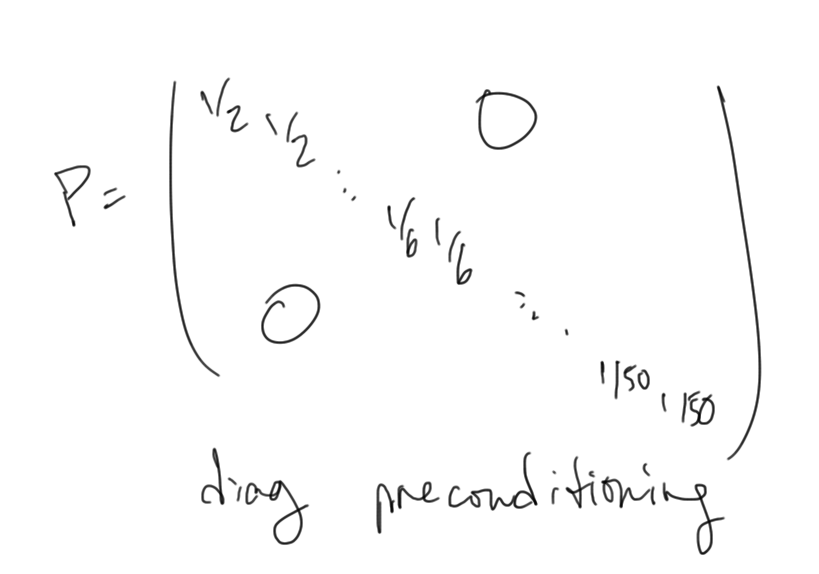 P = ( 1/2 1/2 ⋱ 1/6 1/6 ⋱ 1/50 1/50 )
O
O
diag preconditioning